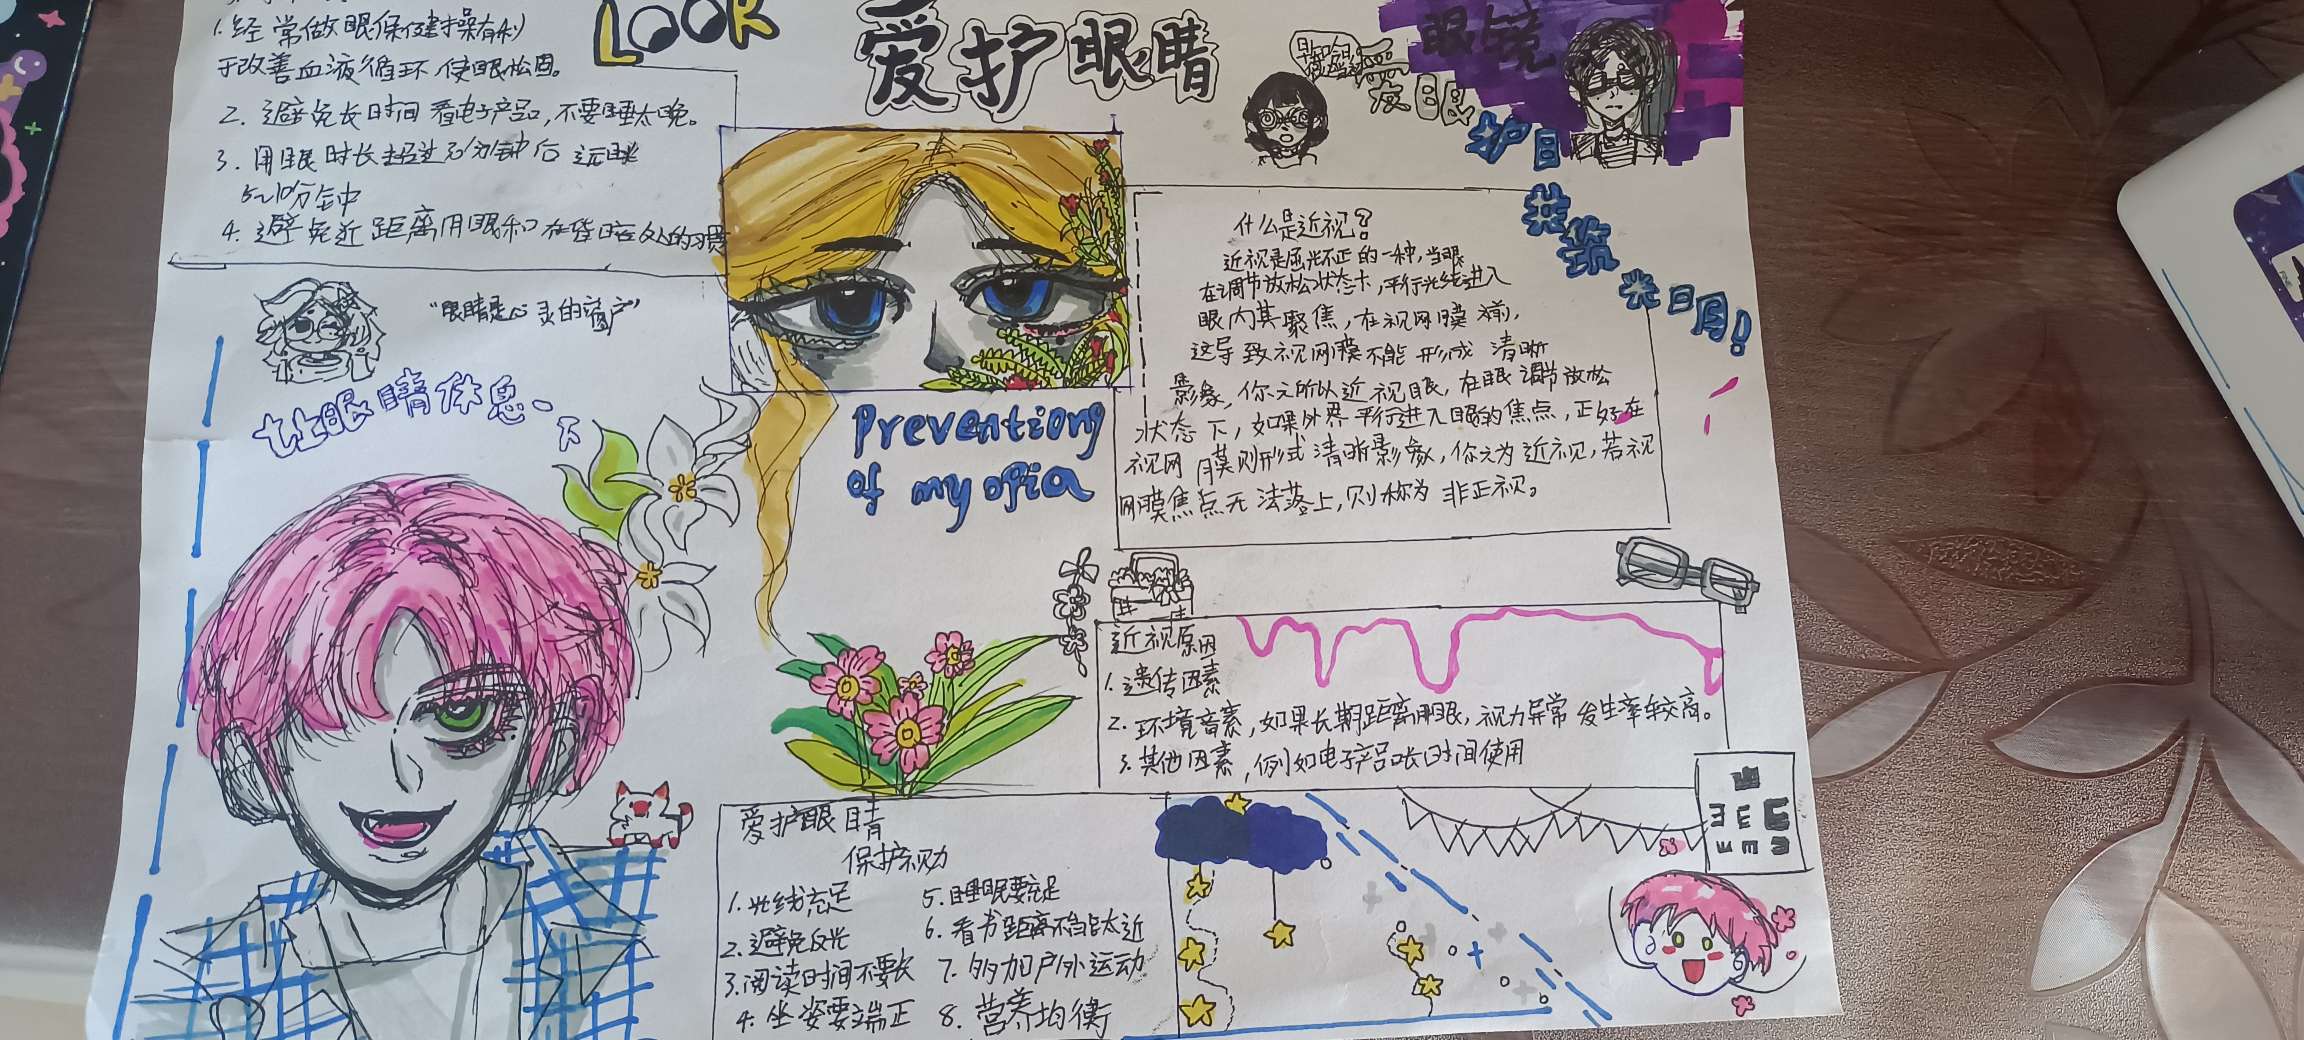 1.经常做眼保健操有利
于改善血液循环,使眼松固。
2.避免长时间看电子产品,不要睡太晚。
3.用眼时长超过30分钟后远眺
5~10分钟
4.避免近距离用眼和在昏暗处的习惯
LOOK
爱护眼睛
眼镜
爱眼
护目
共筑
光明!
"眼睛是心灵的窗户"
让眼睛休息一下
Preventiong
of myopia
什么是近视?
近视是屈光不正的一种,当眼
在调节放松状态下,平行光线进入
眼内其聚焦,在视网膜前,
这导致视网膜不能形成清晰
影象,你之所以近视眼,在眼调节放松
状态下,如果外界平行进入眼的焦点,正好在
视网膜则形式清晰影象,你之为近视,若视
网膜焦点无法落上,则称为非正视。
近视原因
1.遗传因素
2.环境音素,如果长期距离用眼,视力异常发生率较高。
3.其他因素,例如电子产品长时间使用
爱护眼睛
保护视力
1.光线充足
2.避免反光
3.阅读时间不要长
4.坐姿要端正
5.睡眠要充足
6.看书距离不能太近
7.多加户外运动
8.营养均衡